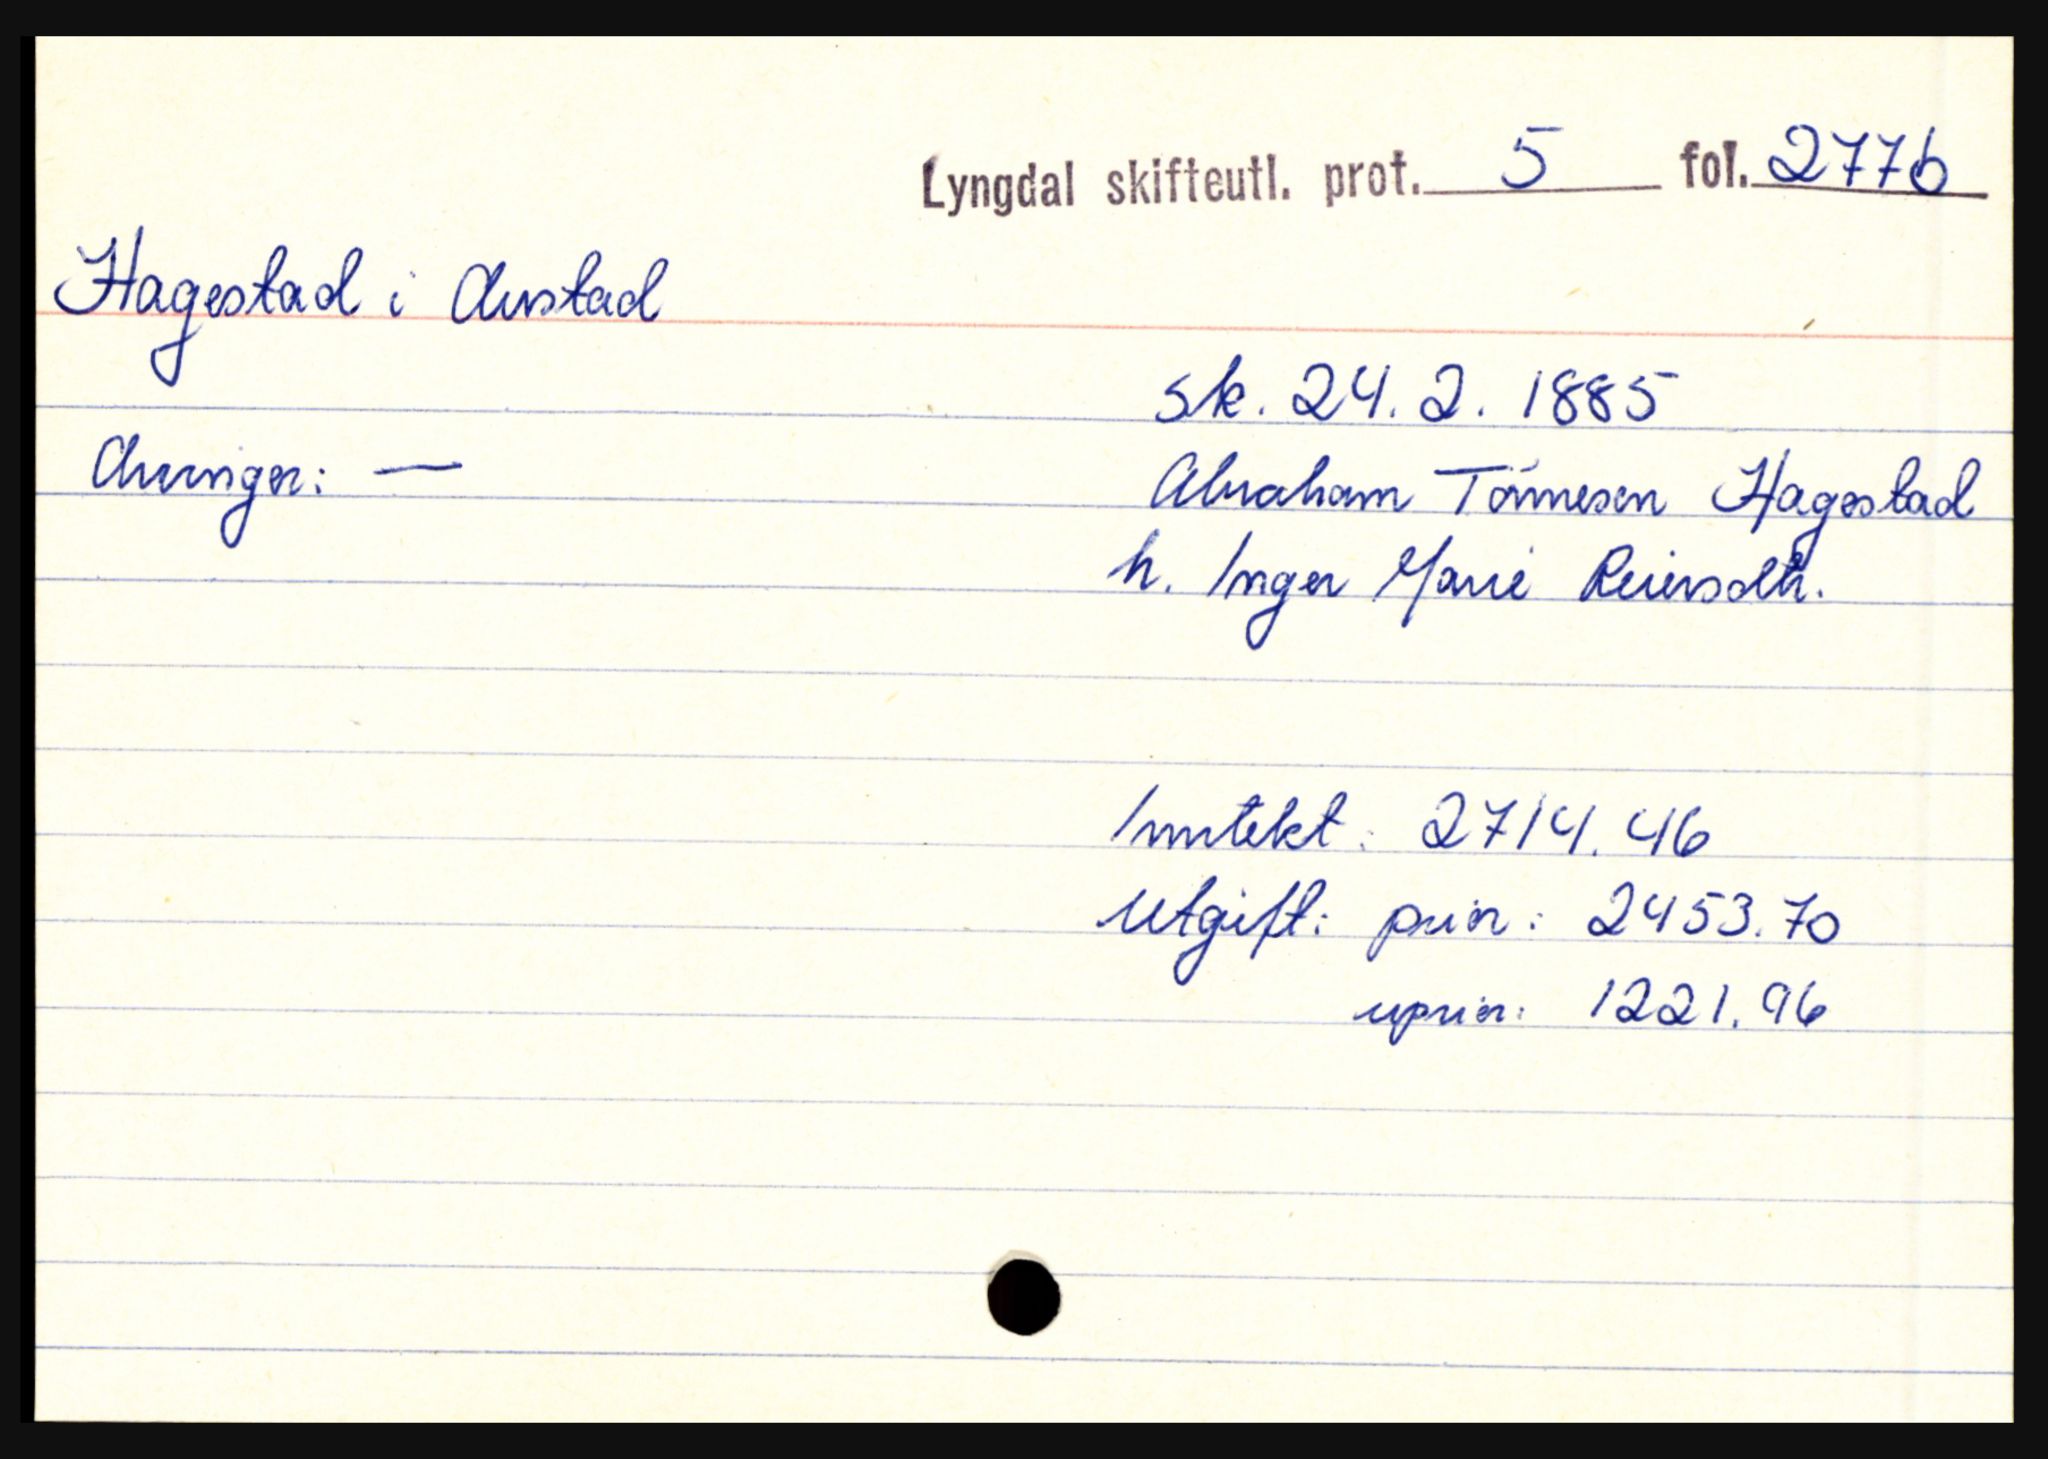 Lyngdal skifteutl. prot. 5 fol. 277b
Hagestad i Austad
sk. 24. 2. 1885
Arvinger: —
Abraham Tönnesen Hagestad
h. Inger Marie Reiersdtr.
Inntekt: 2714.46
Utgift: prior: 2453.70
uprior: 1221.96